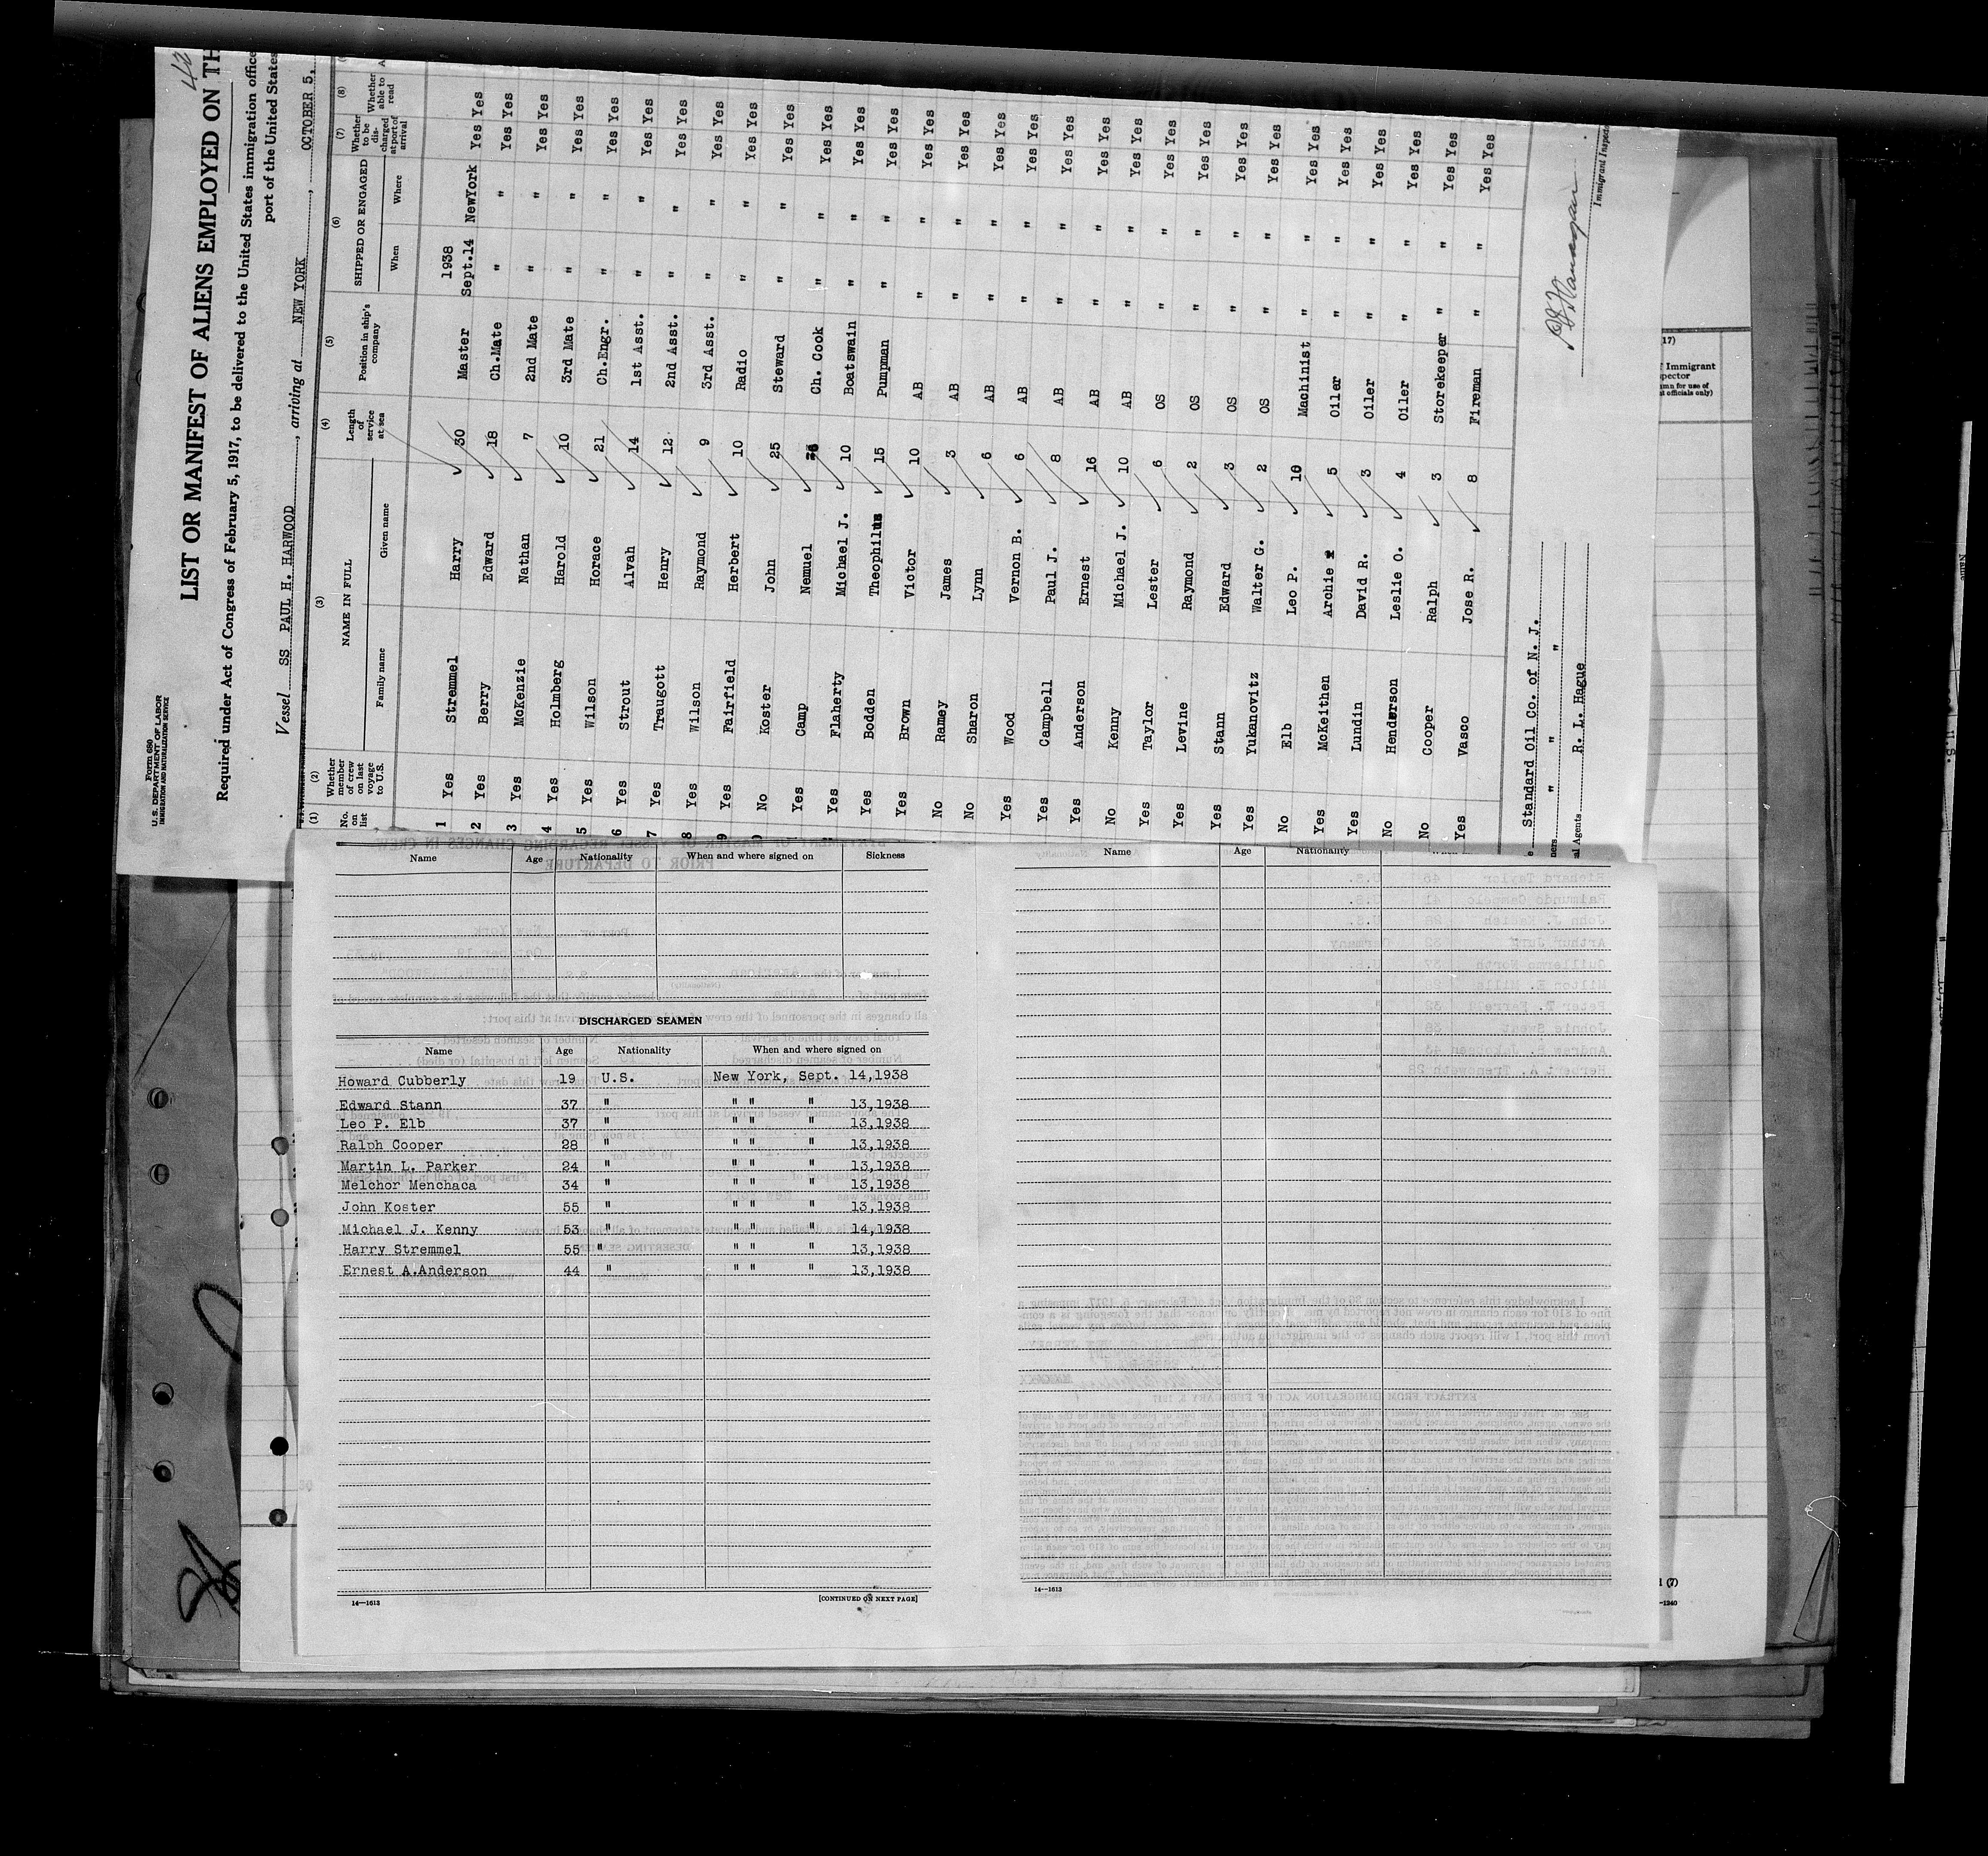 Form 680
U. S. DEPARTMENT OF LABOR
IMMIGRATION AND NATURALIZATION SERVICE
42
LIST OR MANIFEST OF ALIENS EMPLOYED ON TH
Required under Act of Congress of February 5, 1917, to be delivered to the United States immigration office
port of the United States
Vessel SS PAUL H. HARWOOD, arriving at NEW YORK, OCTOBER 5,
(1) (2) (3) (4) (5) (6) (7) (8)
No. on list Whether member of crew on last voyage to U.S. NAME IN FULL Family name Given name Length of service at sea Position in ship's company SHIPPED OR ENGAGED When Where Whether to be discharged at port of arrival Whether able to read
1938
1 Yes Stremmel Harry 30 Master Sept.14 NewYork Yes Yes
2 Yes Berry Edward 18 Ch.Mate " " Yes Yes
3 Yes McKenzie Nathan 7 2nd Mate " " Yes Yes
4 Yes Holmberg Harold 10 3rd Mate " " Yes Yes
5 Yes Wilson Horace 21 Ch.Engr. " " Yes Yes
6 Yes Strout Alvah 14 1st Asst. " " Yes Yes
7 Yes Traugott Henry 12 2nd Asst. " " Yes Yes
8 Yes Wilson Raymond 9 3rd Asst. " " Yes Yes
9 Yes Fairfield Herbert 10 Radio " " Yes Yes
No Koster John 25 Steward " " Yes Yes
Yes Camp Nemuel Ch. Cook " " Yes Yes
Yes Flaherty Michael J. 10 Boatswain " " Yes Yes
Yes Bodden Theophilus 15 Pumpman " " Yes Yes
Yes Brown Victor 10 AB " " Yes Yes
No Ramey James 3 AB " " Yes Yes
No Sharon Lynn 6 AB " " Yes Yes
Yes Wood Vernon B. 6 AB " " Yes Yes
Yes Campbell Paul J. 8 AB " " Yes Yes
Yes Anderson Ernest 16 AB " " Yes Yes
No Kenny Michael J. 10 AB " " Yes Yes
Yes Taylor Lester 6 OS " " Yes Yes
Yes Levine Raymond 2 OS " " Yes Yes
Yes Stann Edward 3 OS " " Yes Yes
Yes Yukanovitz Walter G. 2 OS " " Yes Yes
No Elb Leo P. 10 Machinist " " Yes Yes
Yes McKeithen Archie 5 Oiler " " Yes Yes
Yes Lundin David R. 3 Oiler " " Yes Yes
No Henderson Leslie O. 4 Oiler " " Yes Yes
No Cooper Ralph 3 Storekeeper " " Yes Yes
Yes Vasco Jose R. 8 Fireman " " Yes Yes
Standard Oil Co. of N. J.
ners " " "
al Agents R. L. Hague
Immigrant Inspec
17)
f Immigrant
pector
Name Age Nationality When and where signed on Sickness
DISCHARGED SEAMEN
Name Age Nationality When and where signed on
Howard Cubberly 19 U.S. New York, Sept. 14,1938
Edward Stann 37 " " " " 13,1938
Leo P. Elb 37 " " " " 13,1938
Ralph Cooper 28 " " " " 13,1938
Martin L. Parker 24 " " " " 13,1938
Melchor Menchaca 34 " " " " 13,1938
John Koster 55 " " " " 13,1938
Michael J. Kenny 53 " " " " 14,1938
Harry Stremmel 55 " " " " 13,1938
Ernest A.Anderson 44 " " " " 13,1938
14—1613 [CONTINUED ON NEXT PAGE]
Name Age Nationality
14—1613